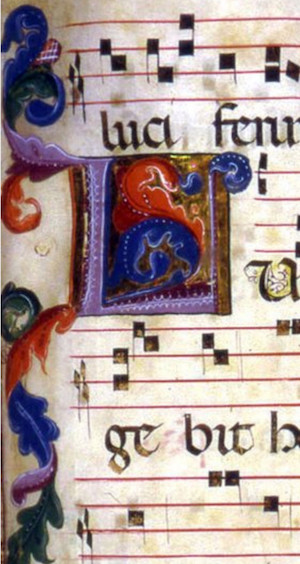 luci feru
LU
ge bit h